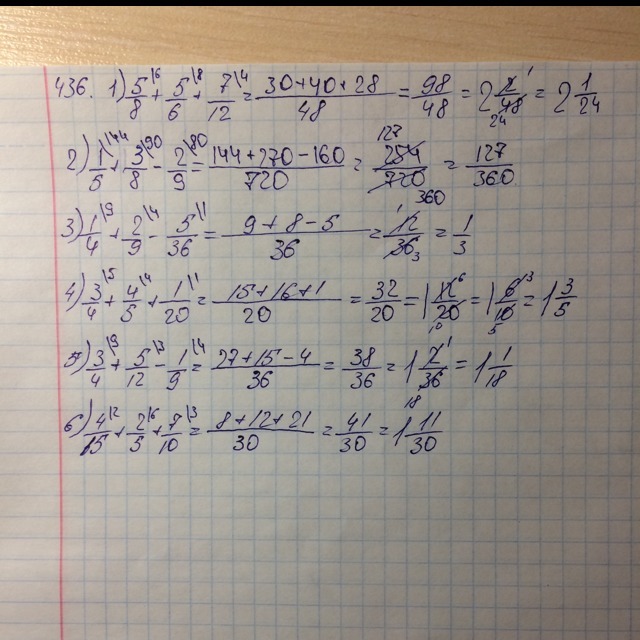 436. 1) 5/8\6 + 5/6\8 + 7/12\4 = (30+40+28)/48 = 98/48 = 2 2/48 1 24 = 2 1/24
2) 1/5\144 + 3/8\90 - 2/9\80 = (144+270-160)/720 = 127 254/720 360 = 127/360
3) 1/4\9 + 2/9\4 - 5/36\1 = (9+8-5)/36 = 1 12/36 3 = 1/3
4) 3/4\5 + 4/5\4 + 1/20\1 = (15+16+1)/20 = 32/20 = 1 12/20 6 10 = 1 6/10 3 5 = 1 3/5
5) 3/4\9 + 5/12\3 - 1/9\4 = (27+15-4)/36 = 38/36 = 1 2/36 1 18 = 1 1/18
6) 4/15\2 + 2/5\6 + 7/10\3 = (8+12+21)/30 = 41/30 = 1 11/30